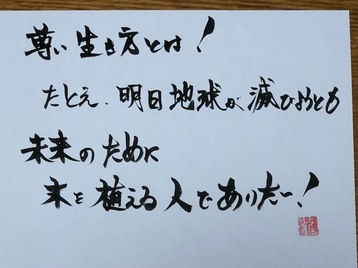 尊い生き方とは!
たとえ、明日地球が滅びようとも
未来のために
木を植える人でありたい!